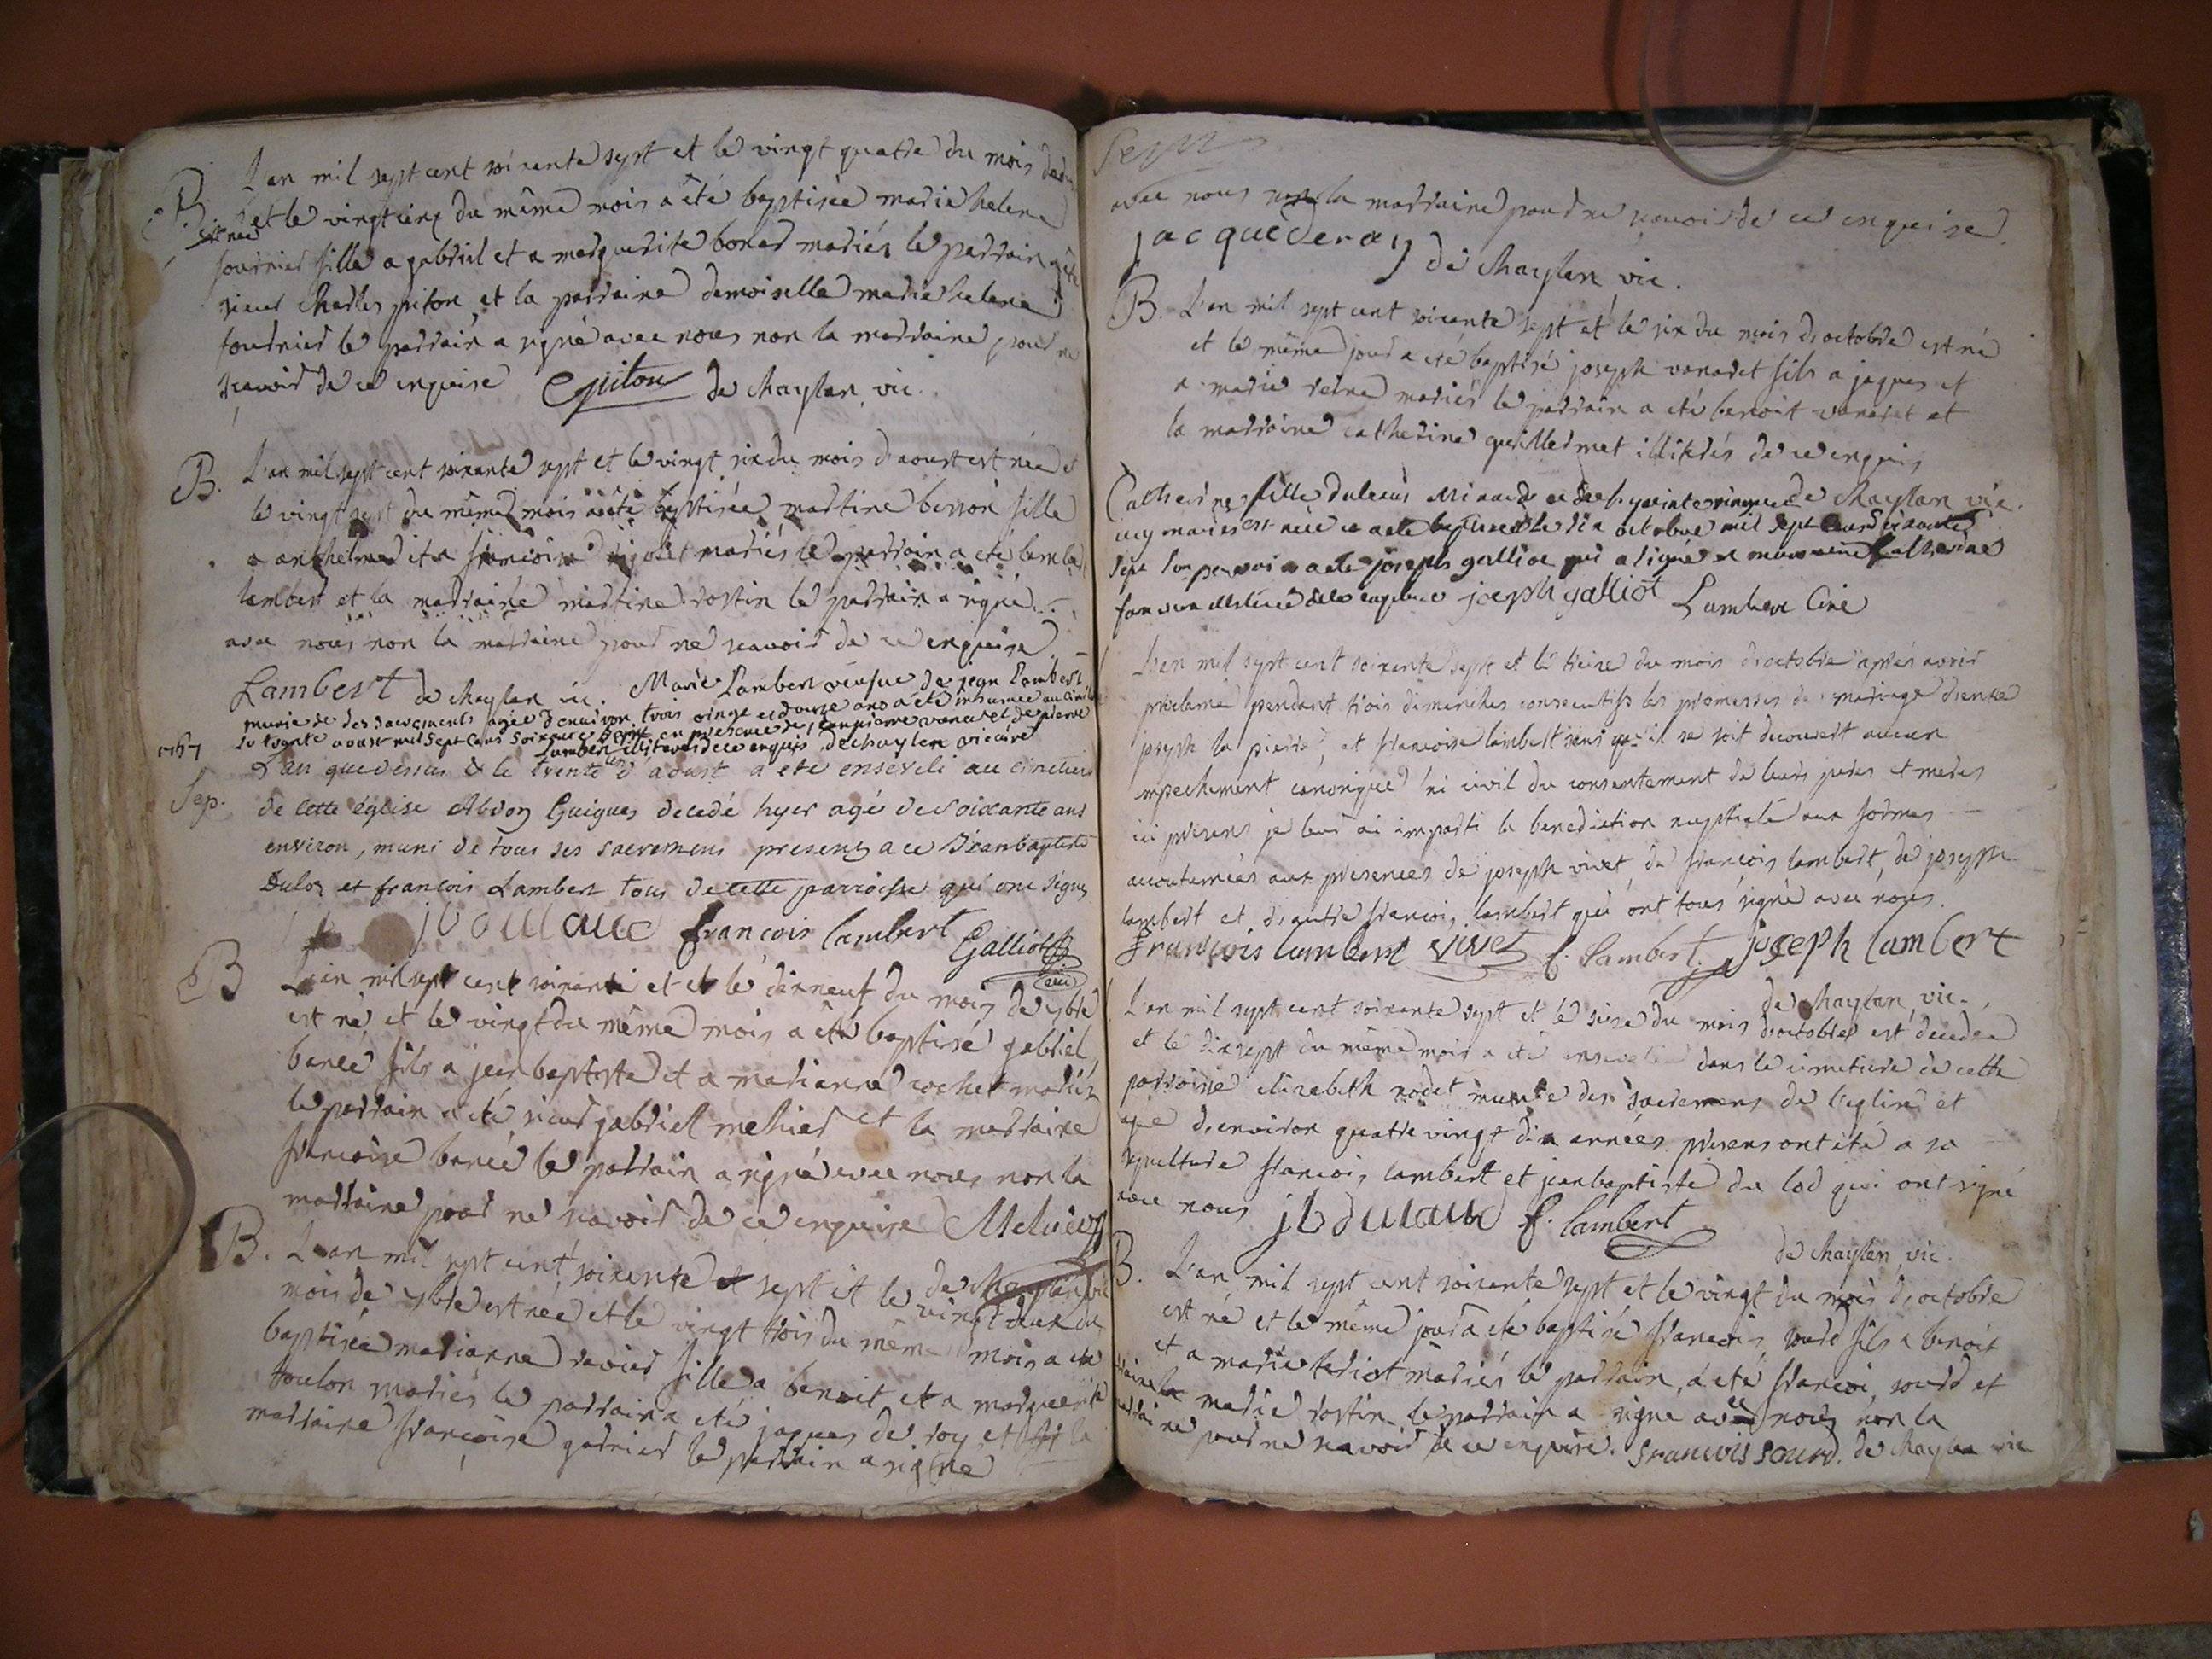 B. L'an mil sept cent soixante sept et le vingt quattre du mois
est née et le vingt cinq du même mois a été baptisée marie helene
fournier fille a gabriel et a marguerite maries le parrain
sieur charles piton et la marraine demoiselle marie helene
fournier le parrain a signé avec nous non la marraine pour ne
scavoir de ce enquise Cpiton de chaylan vic.
B. L'an mil sept cent soixante sept et le vingt six du mois d'aoust est née et
le vingt sept du même mois a été baptisée martine besson fille
a anthelme et a francoise mariés le parrain a été
lambert et la marraine martine rostin le parrain a signé
avec nous non la marraine pour ne scavoir de ce enquise
Lambert de chaylan vic. Marie Lambert veufve de jean Lambert
munie de des sacrements agée d'environ trois vingt et douze ans a été inhumée au
le trante aoust mil sept cens soixante sept en presence de jean pierre vanaret de pierre
Lambert illiterés de ce enquis dechaylan vicaire
1767
Sep. L'an que dessus & le trente d'aoust a eté enseveli au cimetiere
de cette église Abdon Guigues decedé hyer agé de soixante ans
environ, muni de tous ses sacremens presens a ce Jean baptiste
Dulos et francois Lambert tous de cette parroisse qui ont signes
jb dulauc francois lambert Galliot
B L'an mil sept cent soixante et et le dixneuf du mois de 7bre
est né et le vingt du même mois a été baptisé gabriel
bancé fils a jean baptiste et a marianne cochet mariés
le parrain a été sieur gabriel mehier et la marraine
francoise bancé le parrain a signé avec nous non la
marraine pour ne scavoir de ce enquise Mehier
de chaylan vic
B. L'an mil sept cent soixante et sept et le vingt deux du
mois de 7bre est née et le vingt trois du même mois a été
baptisée marianne ravier fille a benoit et a marguerite
toulon mariés le parrain a été jaques de roy et la
marraine francoise garnier le parrain a signé
avec nous non la marraine pour ne scavoir de ce enquise.
jacquederay de chaylan vic.
B. L'an mil sept cent soixante sept et le six du mois d'octobre est né
et le même jour a été baptisé joseph vanaret fils a jaques et
a marie reine mariés le parrain a été benoit vanaret et
la marraine catherine guillermet illiterés de ce enquis
de chaylan vic.
Catherine fille du sieur
mariés est née et a été baptisée le dix octobre mil sept cens soixante
sept son parrain a été joseph galliot qui a signé et marraine Catherine
illiterée de ce enquise joseph galliot Lambert Curé
L'an mil sept cent soixante sept et le treize du mois d'octobre après avoir
proclamé pendant trois dimanches consecutifs les promesses de mariage d'entre
joseph la pierre et francoise lambert sans qu'il se soit decouvert aucun
empechement canonique ni civil du consentement de leurs peres et meres
ici presens je leur ai imparti la benediction nuptiale aux formes
accoutumées aux presences de joseph vivet, de françois lambert, de joseph
lambert et d'autre francois lambert qui ont tous signé avec nous.
francois lambert vivet f. Lambert. joseph lambert
de chaylan vic.
L'an mil sept cent soixante sept et le seize du mois d'octobre est decedée
et le dixsept du même mois a été ensevelie dans le cimetiere de cette
parroisse elizabeth nodet munie des sacremens de l'eglise et
agé d'environ quattre vingt dix années presens ont été a sa
sepulture francois lambert et jean baptiste du lod qui ont signé
avec nous jb dulauc f. lambert
de chaylan vic.
B. L'an mil sept cent soixante sept et le vingt du mois d'octobre
est né et le même jour a été baptisé francois sourd fils a benoit
et a marie teriot mariés le parrain a été francoi sourd et
la marie rostin le parrain a signe avec nous non la
marraine pour ne scavoir de ce enquise. francois sourd. de chaylan vic